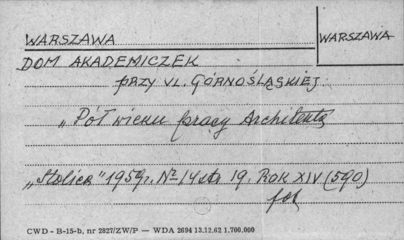 WARSZAWA
WARSZAWA
DOM AKADEMICZEK
PRZY UL. GÓRNOŚLĄSKIEJ.
„Pół wieku pracy Architekta
„Stolica" 1959r. Nr 14 str 19. ROK XIV (590)
fot
CWD - B-15-b, nr 2827/ZW/P — WDA 2694 13.12.62 1.700.000